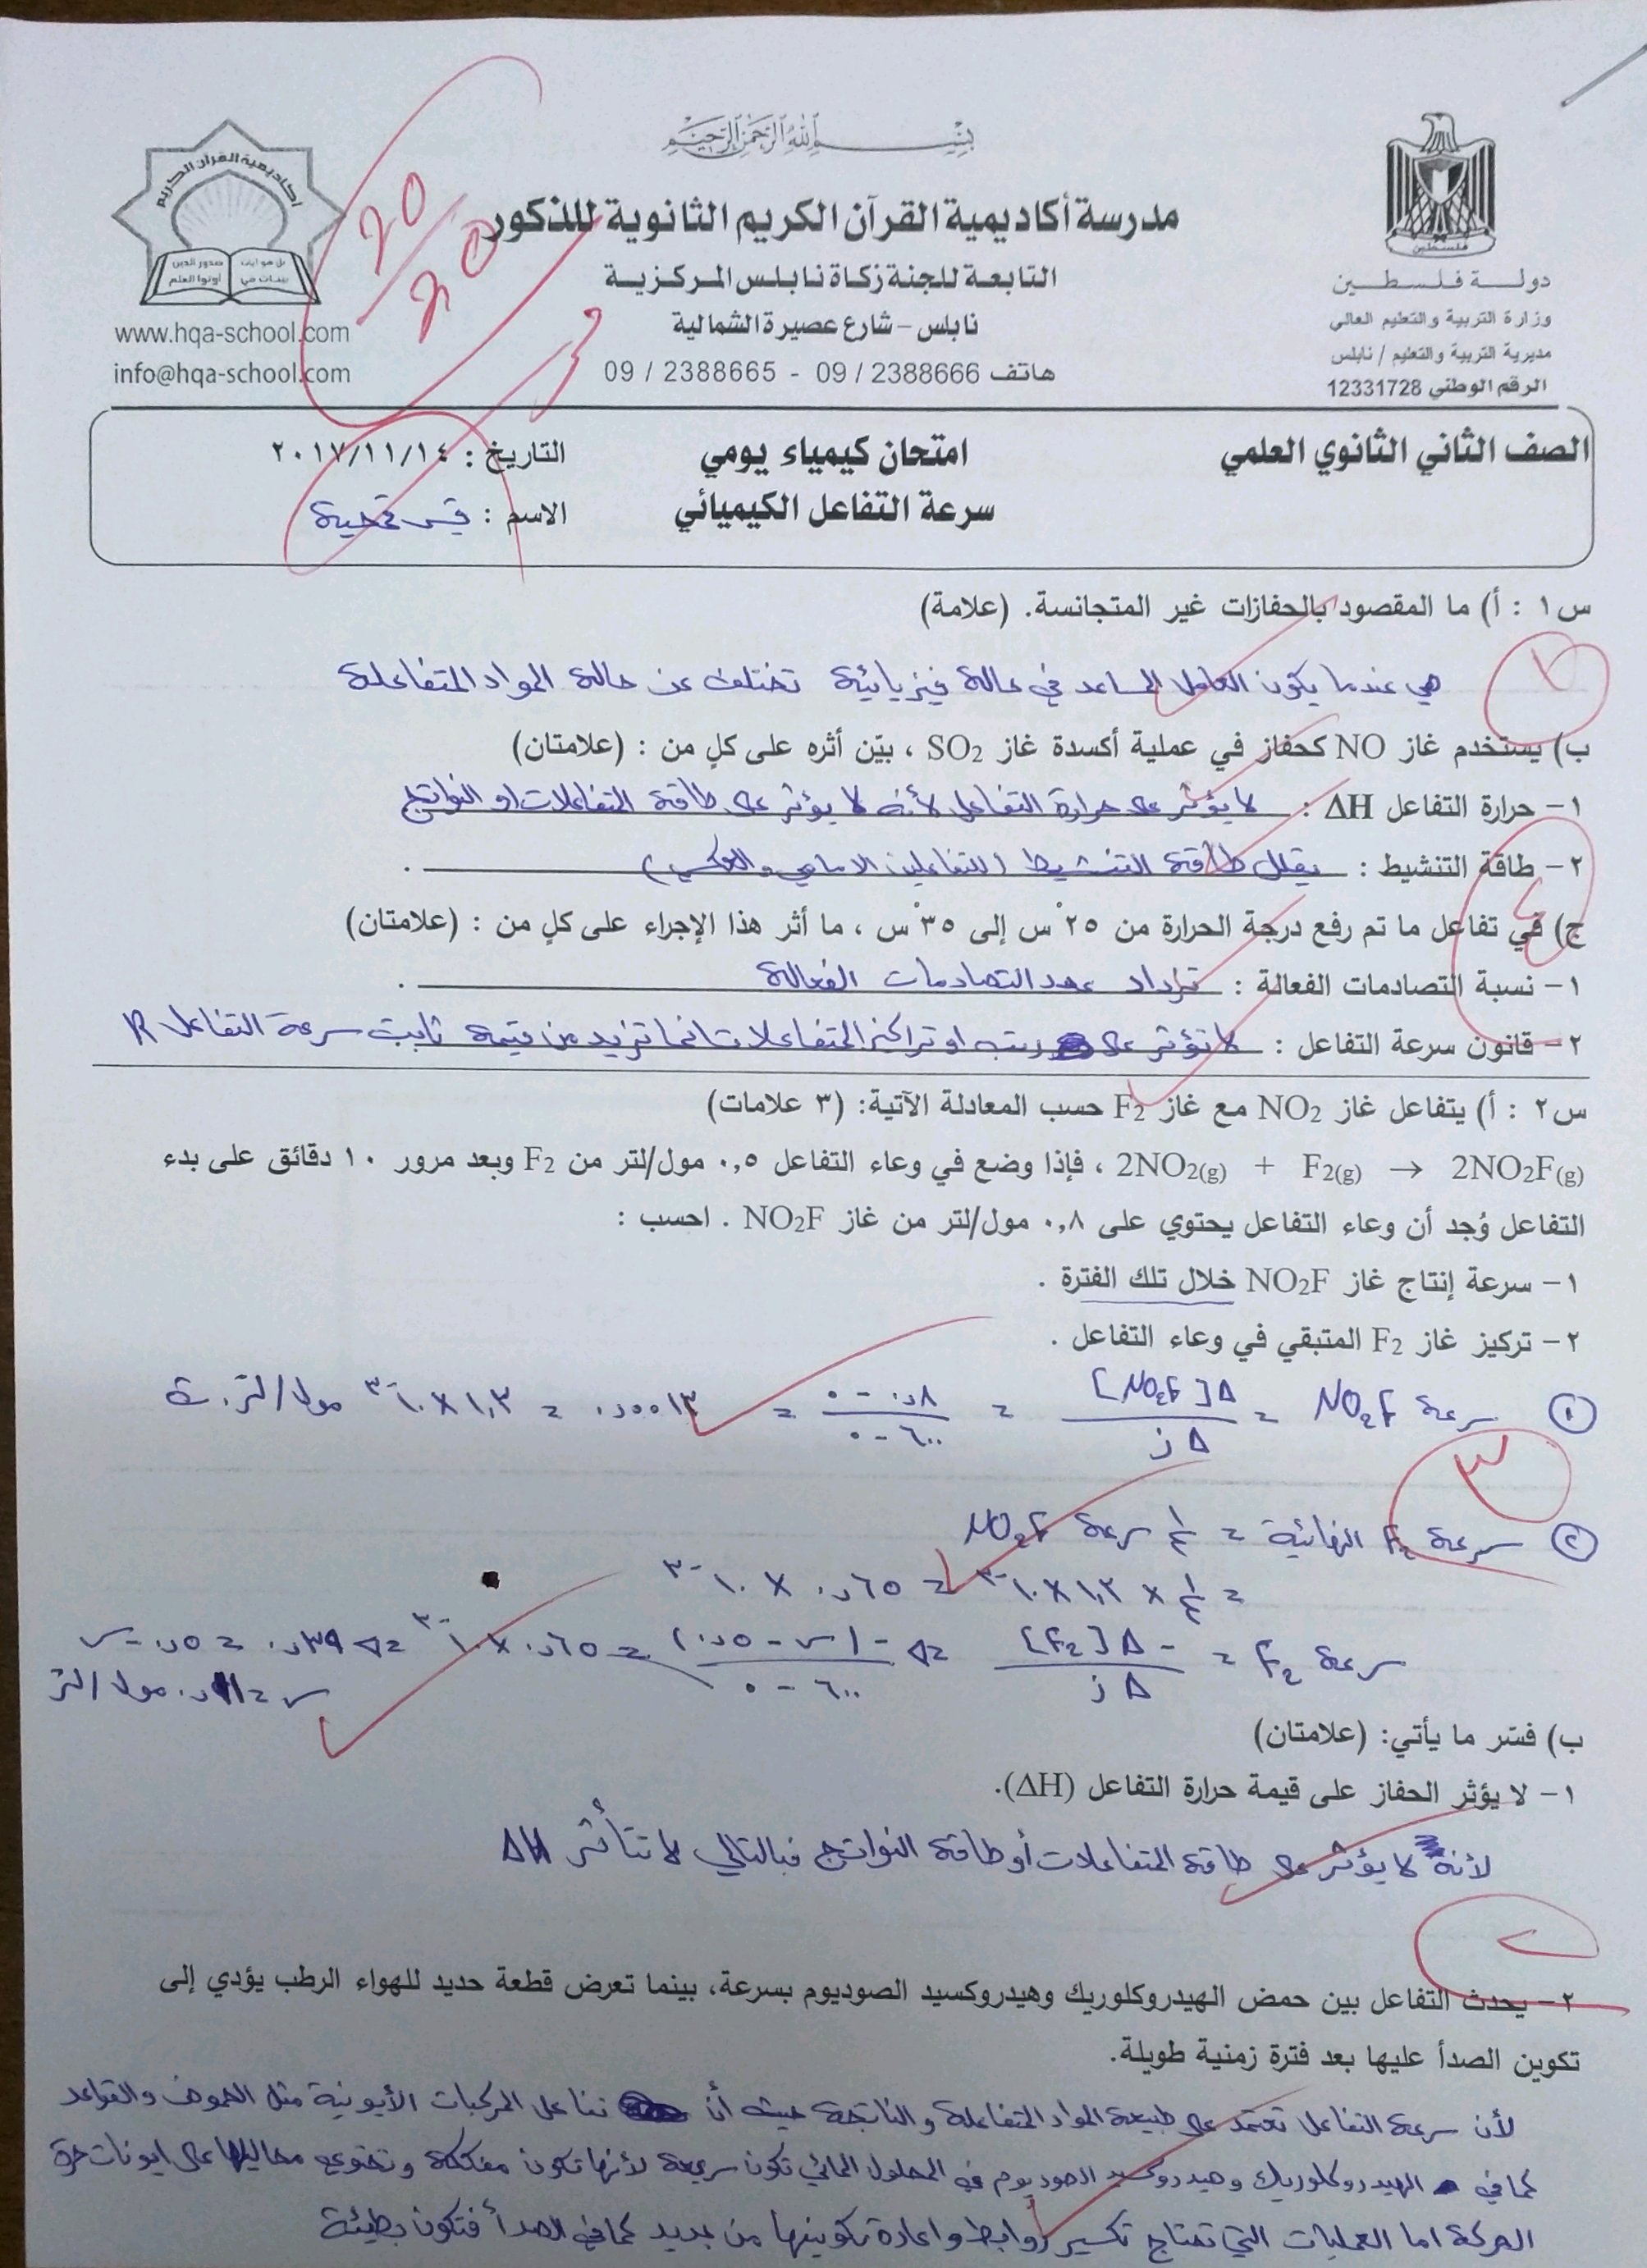 بسم الله الرحمن الرحيم
أكاديمية القرآن الكريم
بل هو آيات بينات في
صدور الذين أوتوا العلم
مدرسة أكاديمية القرآن الكريم الثانوية للذكور
التابعة للجنة زكاة نابلس المركزية
نابلس - شارع عصيرة الشمالية
هاتف 09 / 2388666 - 09 / 2388665
فلسطين
دولة فلسطين
وزارة التربية والتعليم العالي
مديرية التربية والتعليم / نابلس
الرقم الوطني 12331728
www.hqa-school.com
info@hqa-school.com
20
20
الصف الثاني الثانوي العلمي
امتحان كيمياء يومي
سرعة التفاعل الكيميائي
التاريخ : ٢٠١٧/١١/١٤
الاسم :
س١ : أ) ما المقصود بالحفازات غير المتجانسة. (علامة)
١
هي عندما يكون العامل المساعد في حالة فيزيائية تختلف عن حالة المواد المتفاعلة
ب) يستخدم غاز NO كحفاز في عملية أكسدة غاز SO₂ ، بيّن أثره على كلٍ من : (علامتان)
١- حرارة التفاعل ΔH : لا يؤثر على حرارة التفاعل لأنه لا يؤثر على طاقة المتفاعلات او النواتج
٢- طاقة التنشيط : يقلل طاقة التنشيط (للتفاعلين الامامي والعكسي) .
٤
ج) في تفاعل ما تم رفع درجة الحرارة من ٢٥ْ س إلى ٣٥ْ س ، ما أثر هذا الإجراء على كلٍ من : (علامتان)
١- نسبة التصادمات الفعالة : تزداد عدد التصادمات الفعالة .
٢- قانون سرعة التفاعل : لا تؤثر على رتب او تراكيز المتفاعلات انما تزيد من قيمة ثابت سرعة التفاعل K
س٢ : أ) يتفاعل غاز NO₂ مع غاز F₂ حسب المعادلة الآتية: (٣ علامات)
2NO₂(g) + F₂(g) → 2NO₂F(g) ، فإذا وضع في وعاء التفاعل ٠,٥ مول/لتر من F₂ وبعد مرور ١٠ دقائق على بدء
التفاعل وُجد أن وعاء التفاعل يحتوي على ٠,٨ مول/لتر من غاز NO₂F . احسب :
١- سرعة إنتاج غاز NO₂F خلال تلك الفترة .
٢- تركيز غاز F₂ المتبقي في وعاء التفاعل .
① سرعة NO₂F = Δ[NO₂F] / Δز = (٠,٨ - ٠) / (٦٠٠ - ٠) = ٠,٠٠١٣ = ١,٣ × ١٠⁻³ مول/لتر.ث
٣
② سرعة F₂ النهائية = ١/٢ سرعة NO₂F
= ١/٢ × ١,٣ × ١٠⁻³ = ٠,٦٥ × ١٠⁻³
سرعة F₂ = -Δ[F₂] / Δز ⇐ -(س - ٠,٥) / (٦٠٠ - ٠) = ٠,٦٥ × ١٠⁻³ ⇐ ٠,٣٩ = ٠,٥ - س
س = ٠,١١ مول/لتر
ب) فسّر ما يأتي: (علامتان)
١- لا يؤثر الحفاز على قيمة حرارة التفاعل (ΔH).
لأنه لا يؤثر على طاقة المتفاعلات أو طاقة النواتج فبالتالي لا تتأثر ΔH
٢
٢- يحدث التفاعل بين حمض الهيدروكلوريك وهيدروكسيد الصوديوم بسرعة، بينما تعرض قطعة حديد للهواء الرطب يؤدي إلى
تكوين الصدأ عليها بعد فترة زمنية طويلة.
لأن سرعة التفاعل تعتمد على طبيعة المواد المتفاعلة والناتجة حيث أن تفاعل المركبات الأيونية مثل الحموض والقواعد
كما في الهيدروكلوريك وهيدروكسيد الصوديوم في المحلول المائي تكون سريعة لأنها تكون مفككة وتحتوي محاليلها على ايونات حرة
الحركة اما العمليات التي تحتاج تكسير روابط واعادة تكوينها من جديد كما في الصدأ فتكون بطيئة